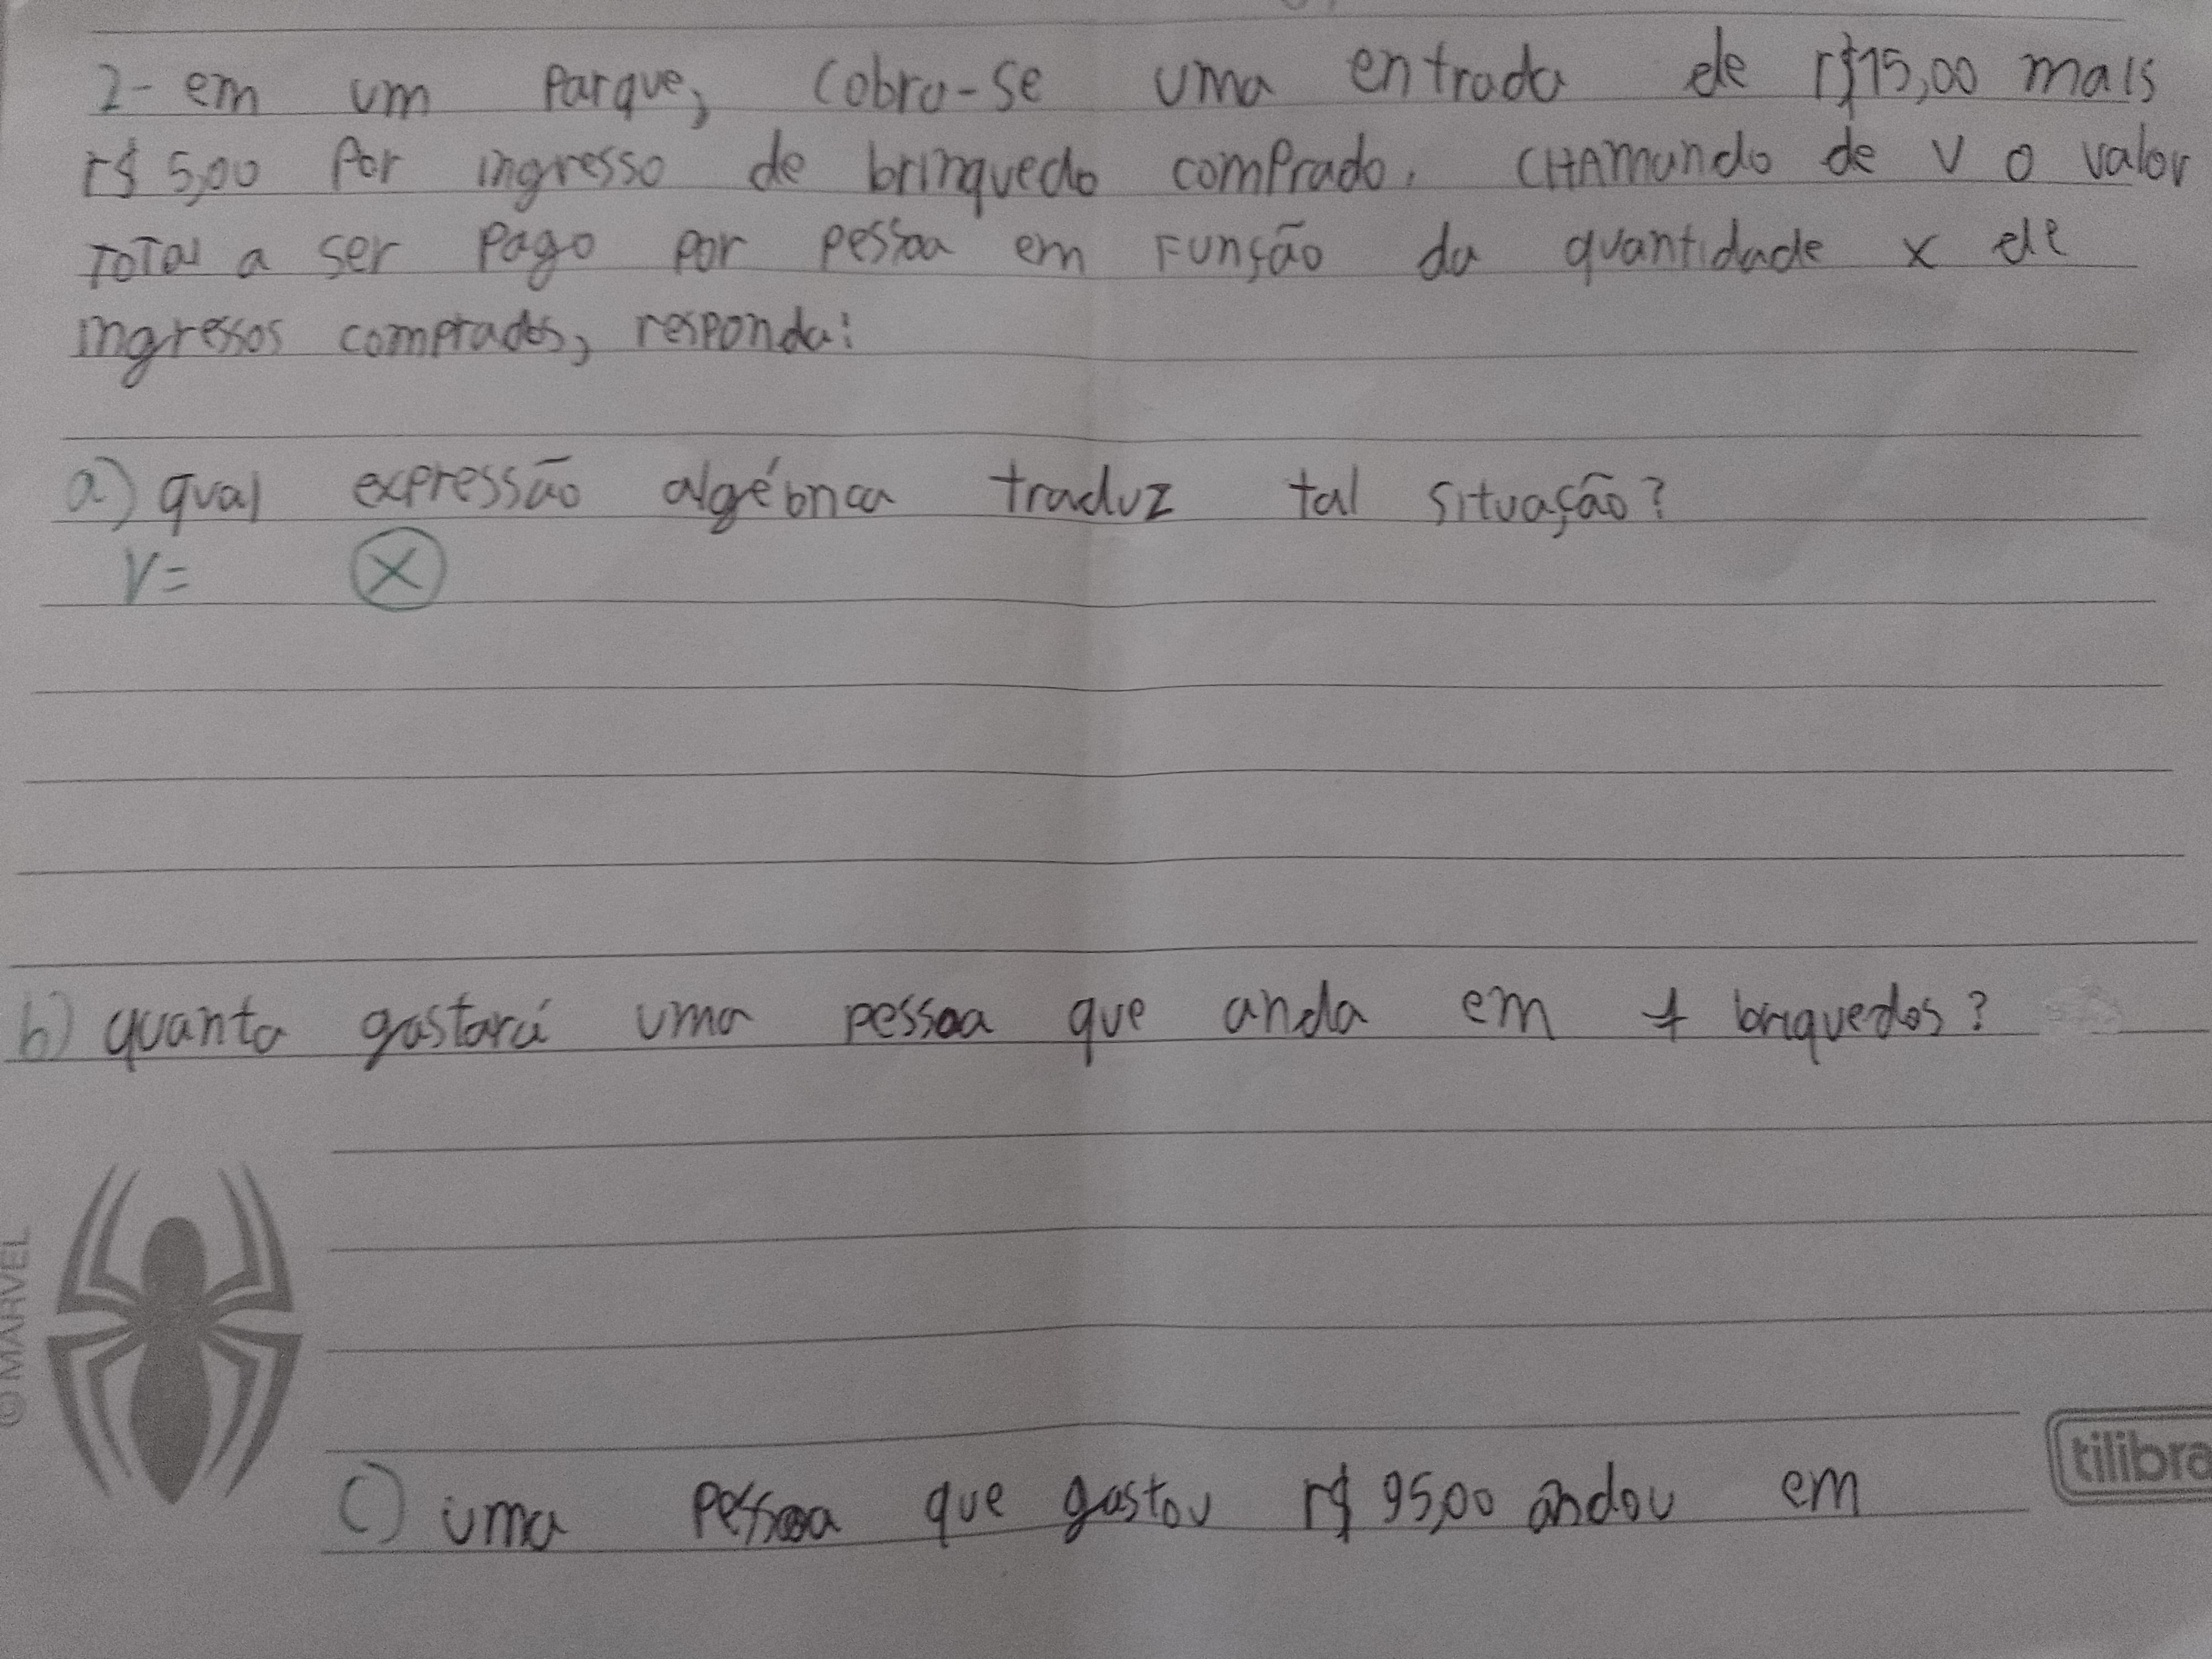 2- em um Parque, cobra-se uma entrada de r$15,00 mais
r$ 5,00 Por ingresso de brinquedo comPrado. CHAmando de V o valor
TOTal a ser Pago por pessoa em Função da quantidade x de
ingressos comprados, responda:
a) qual expressão algébrica traduz tal situação?
V= x
b) quanto gastará uma pessoa que anda em 7 briquedos?
© MARVEL
tilibra
c) uma Pessoa que gastou r$ 95,00 andou em